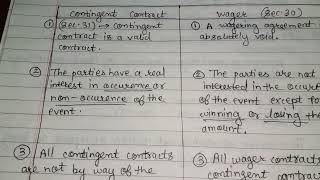 contingent contract
① (Sec. 31) → contingent
contract is a valid
contract.
② The parties have a real
interest in occurence or
non-occurence of the
event.
③ All contingent contracts
are not by way of the
wager (Sec. 30)
① A wagering agreement
absolutely void.
② The parties are not
interested in the
of the event except for
winning or losing the
amount.
③ All wager contracts
contingent